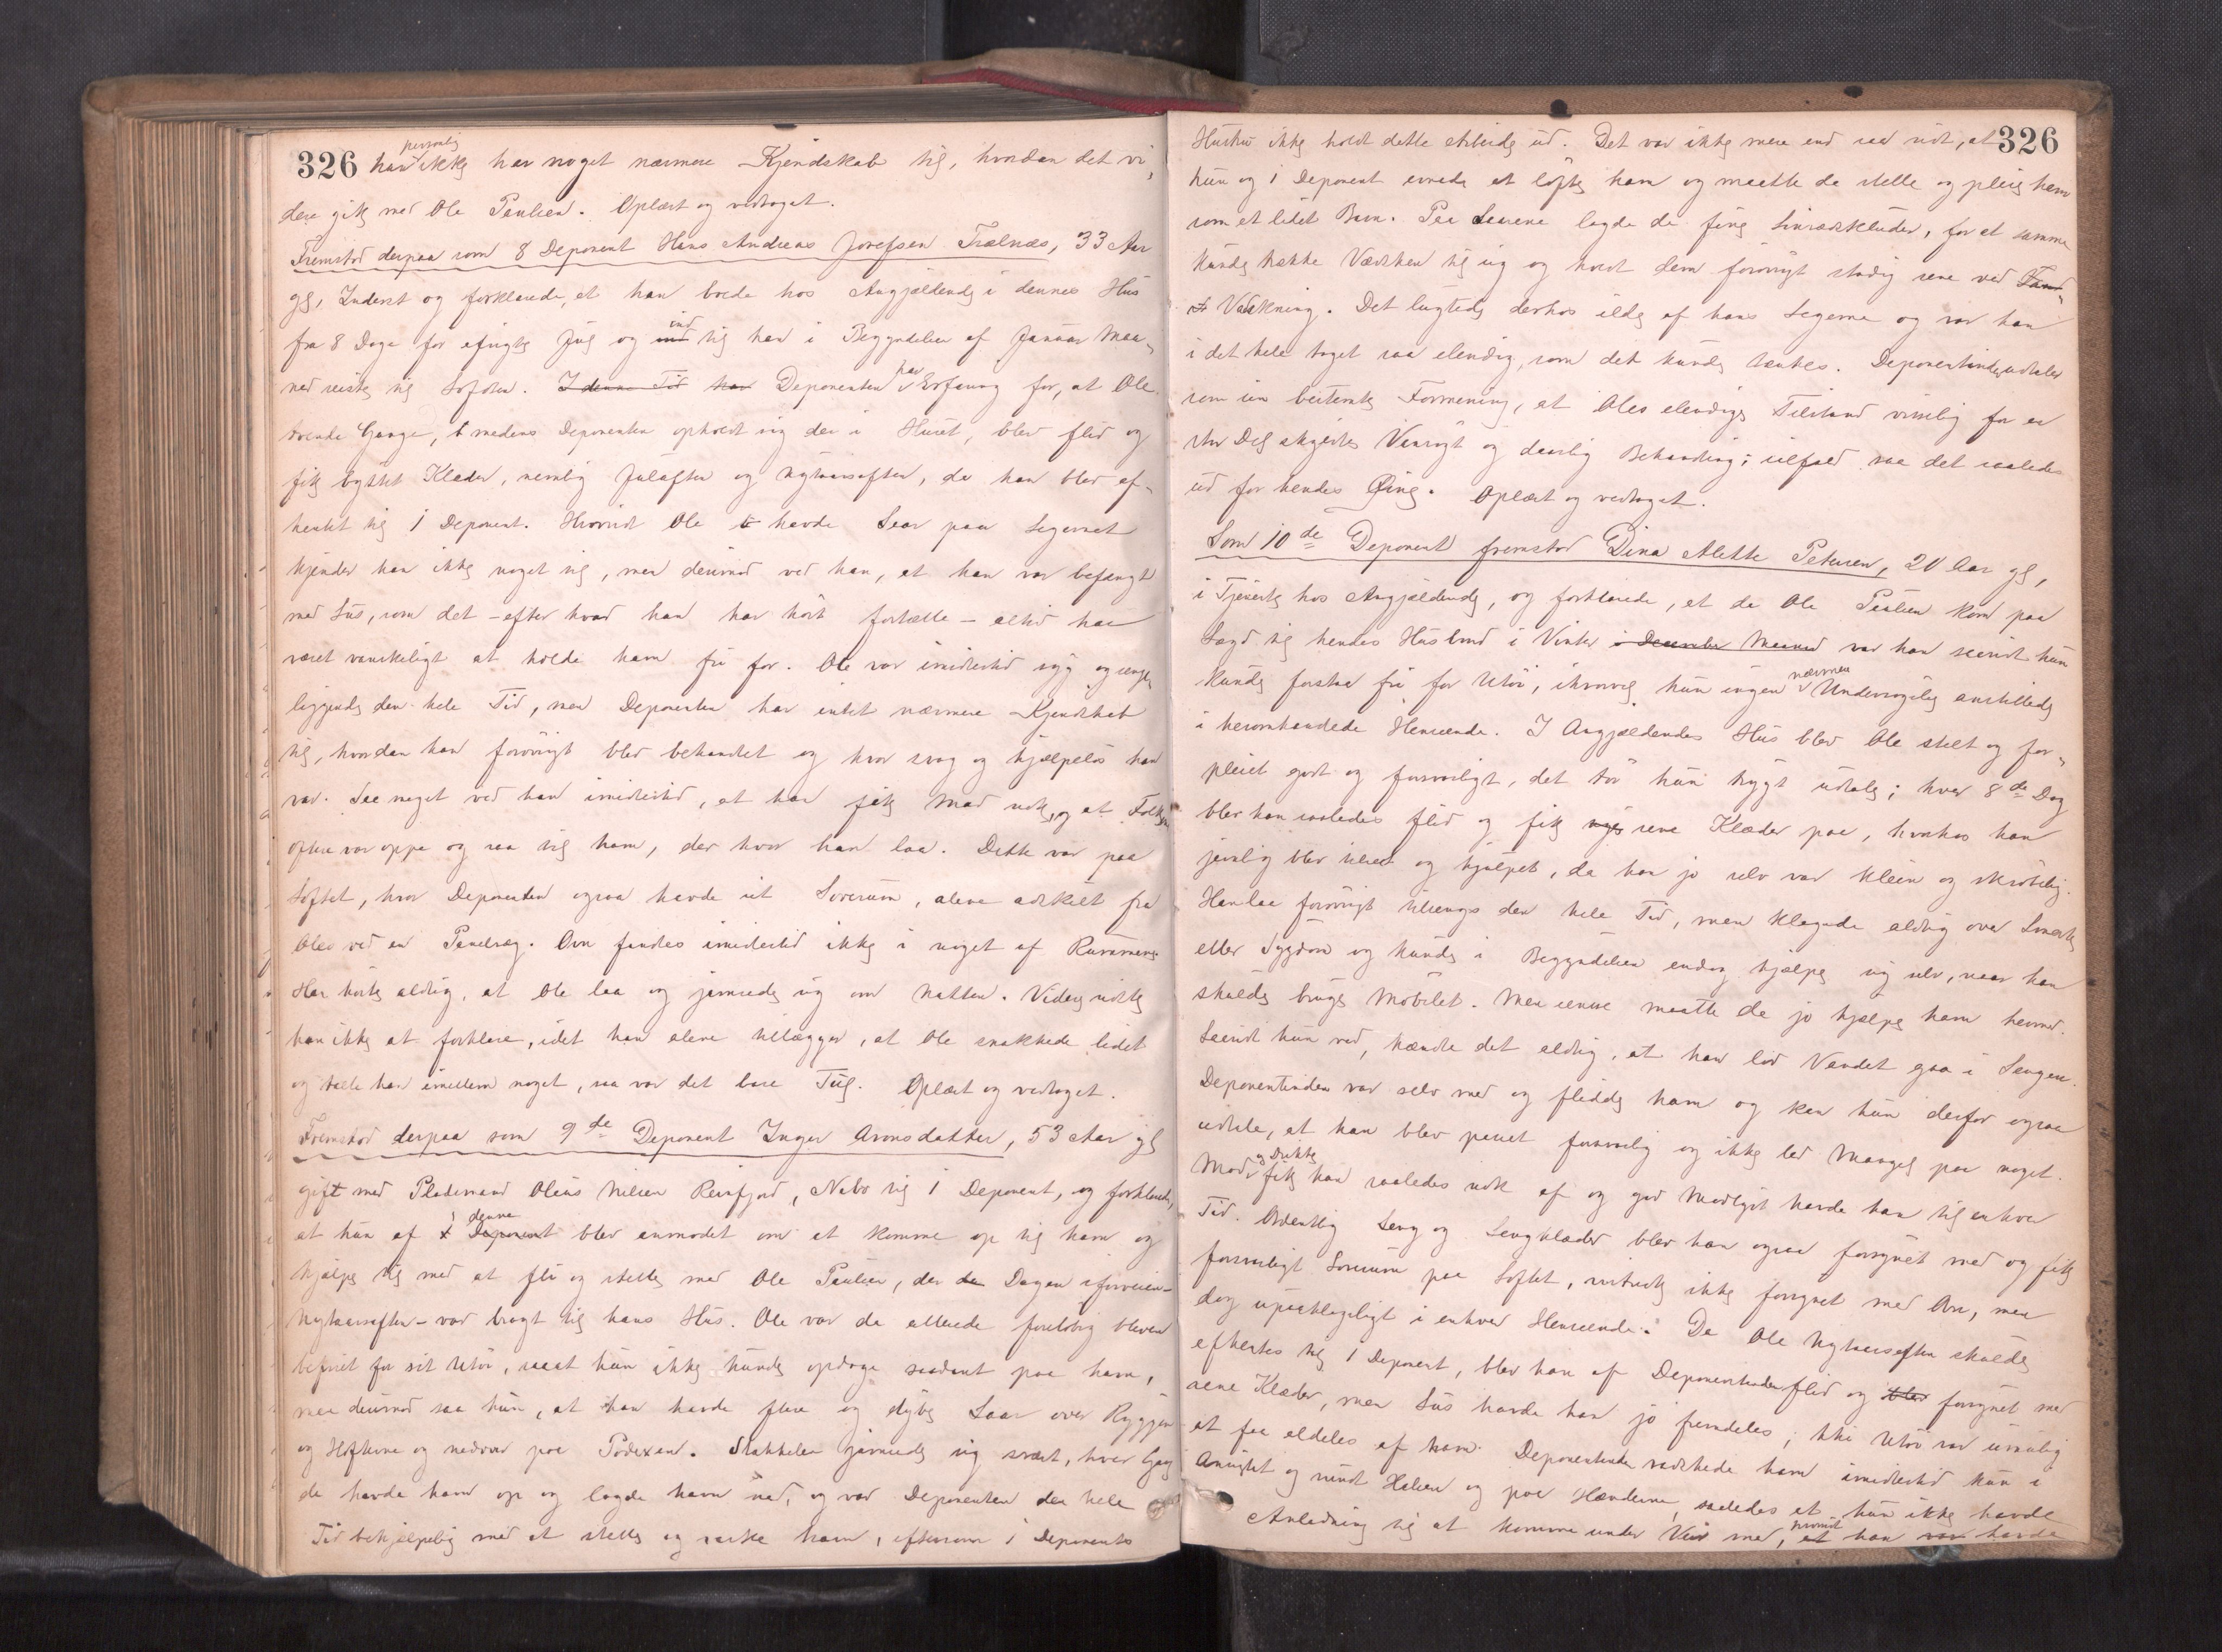 326 han personlig ikke har noget nærmere Kjendskab til, hvordan det vi-
dere gik med Ole Paulsen. Oplæst og vedtaget.
Fremstod derpaa som 8 Deponent Hans Andreas Josefsen Trælnæs, 33 Aar
gl, Inderst og forklarede, at han boede hos Angjældende i dennes Hus
fra 8 Dage før afvigte Jul og ind til han i Begyndelsen af Januar Maa-
ned reiste til Lofoten. I denne Tid har Deponenten har Erfaring for, at Ole
tvende Gange, medens Deponenten opholdt sig der i Huset, blev flid og
fik byttet Klæder, nemlig Juleaften og Nytaarsaften, da han blev af-
hentet til 1 Deponent. Hvorvidt Ole havde Saar paa Legemet
kjender han ikke noget til, men derimod ved han, at han var befængt
med Lus, som det - efter hvad han har hørt fortælle - altid har
været vanskeligt at holde ham fri for. Ole var imidlertid syg og senge-
liggende den hele Tid, men Deponenten har intet nærmere Kjendskab
til, hvordan han forøvrigt blev behandlet og hvor svag og hjælpeløs han
var. Saa meget ved han imidlertid, at han fik Mad nok, og at Folkene
oftere var oppe og saa til ham, der hvor han laa. Dette var paa
Loftet, hvor Deponenten ogsaa havde sit Soverum, alene adskilt fra
Oles ved en Panelvæg. Ovn fandtes imidlertid ikke i noget af Rummene.
Har hørte aldrig, at Ole laa og jamrede sig om Natten. Videre vidste
han ikke at forklare, idet han alene tilægger, at Ole snakkede lidet
og talte han imellem noget, saa var det bare Tul. Oplæst og vedtaget.
Fremstod derpaa som 9de Deponent Inger Aronsdatter, 53 Aar gl
gift med Pladsmand Olaus Nilsen Reinfjord, Nabo til 1 Deponent, og forklarede,
at hun af denne Deponent blev anmodet om at komme op til ham og
hjælpe til med at fli og stelle med Ole Paulsen, der da Dagen iforveien -
Nytaarsaften - var bragt til hans Hus. Ole var da allerede foreløbig bleven
befriet for sit Utøi, saaat hun ikke kunde opdage saadant paa ham,
men derimod saa hun, at han havde flere og dybe Saar over Ryggen
og Hofterne og nedover paa Podexen. Stakkelen jamrede sig svært, hver Gang
de havde ham op og lagde ham ned, og var Deponenten den hele
Tid behjælpelig med at stelle og vaske ham, eftersom 1 Deponents
Hustru ikke holdt dette Arbeide ud. Det var ikke mere end saa vidt, at 326
hun og 1 Deponent evnede at løfte ham og maatte de stelle og pleie ham
som et lidet Barn. Paa Saarene lagde de fine Linredskluder, for at samme
kunde trække Vædsken til sig og holdt dem forøvrigt stadig rene ved
Vaskning. Det lugtede derhos ilde af hans Legeme og var han
i det hele taget saa elendig, som det kunde tænkes. Deponentinden udtaler
som sin bestemte Formening, at Oles elendige Tilstand visselig for en
stor Del skyldtes Vanrøgt og daarlig Behandling; ialfald saa det saaledes
ud for hendes Øine. Oplæst og vedtaget.
Som 10de Deponent fremstod Dina Alette Petersen, 20 Aar gl,
i Tjeneste hos Angjældende, og forklarede, at da Ole Paulsen kom paa
Lægd til hendes Husbond i Vinter i December Maaned var han saavidt hun
kunde forstaa fri for Utøi, ihvorvel hun ingen nærmere Undersøgelse anstillede
i heromhandlede Henseende. I Angjældendes Hus blev Ole stelt og for-
pleiet godt og forsvarligt, det tør hun trygt udtale; hver 8de Dag
blev han saaledes flid og fik rene Klæder paa, hvorhos han
jævnlig blev tilseet og hjulpet, da han jo selv var klein og skrøbelig.
Han laa forøvrigt tilsengs den hele Tid, men klagede aldrig over Smerte
eller Sygdom og kunde i Begyndelsen endog hjælpe sig selv, naar han
skulde bruge Møblet. Men senere maatte de jo hjælpe ham hermed.
Saavidt hun ved, hændte det aldrig, at han lod Vandet gaa i Sengen.
Deponentinden var selv med og fliddede ham og kan hun derfor ogsaa
udtale, at han blev passet forsvarlig og ikke led Mangel paa noget.
Mad og Drikke fik han saaledes nok af og god Madlyst havde han til enhver
Tid. Ordentlig Seng og Sengklæder blev han ogsaa forsynet med og fik
forsvarligt Soverum paa Loftet, vistnok ikke forsynet med Ovn, men
dog upaaklageligt i enhver Henseende. Da Ole Nytaarsaften skulde
afhentes til 1 Deponent, blev han af Deponentinden flid og blev forsynet med
rene Klæder, men Lus havde han jo fremdeles; thi Utøi var umulig
at faa aldeles af ham. Deponentinden vadskede ham imidlertid kun i
Ansigtet og rundt Halsen og paa Hænderne, saaledes at hun ikke havde
Anledning til at komme under Veir med, hvorvidt at han var havde